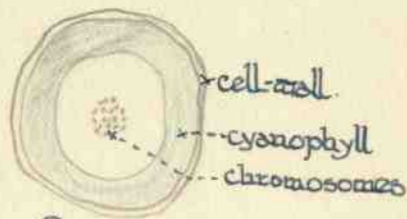 cell-wall.
cyanophyll
chromosomes